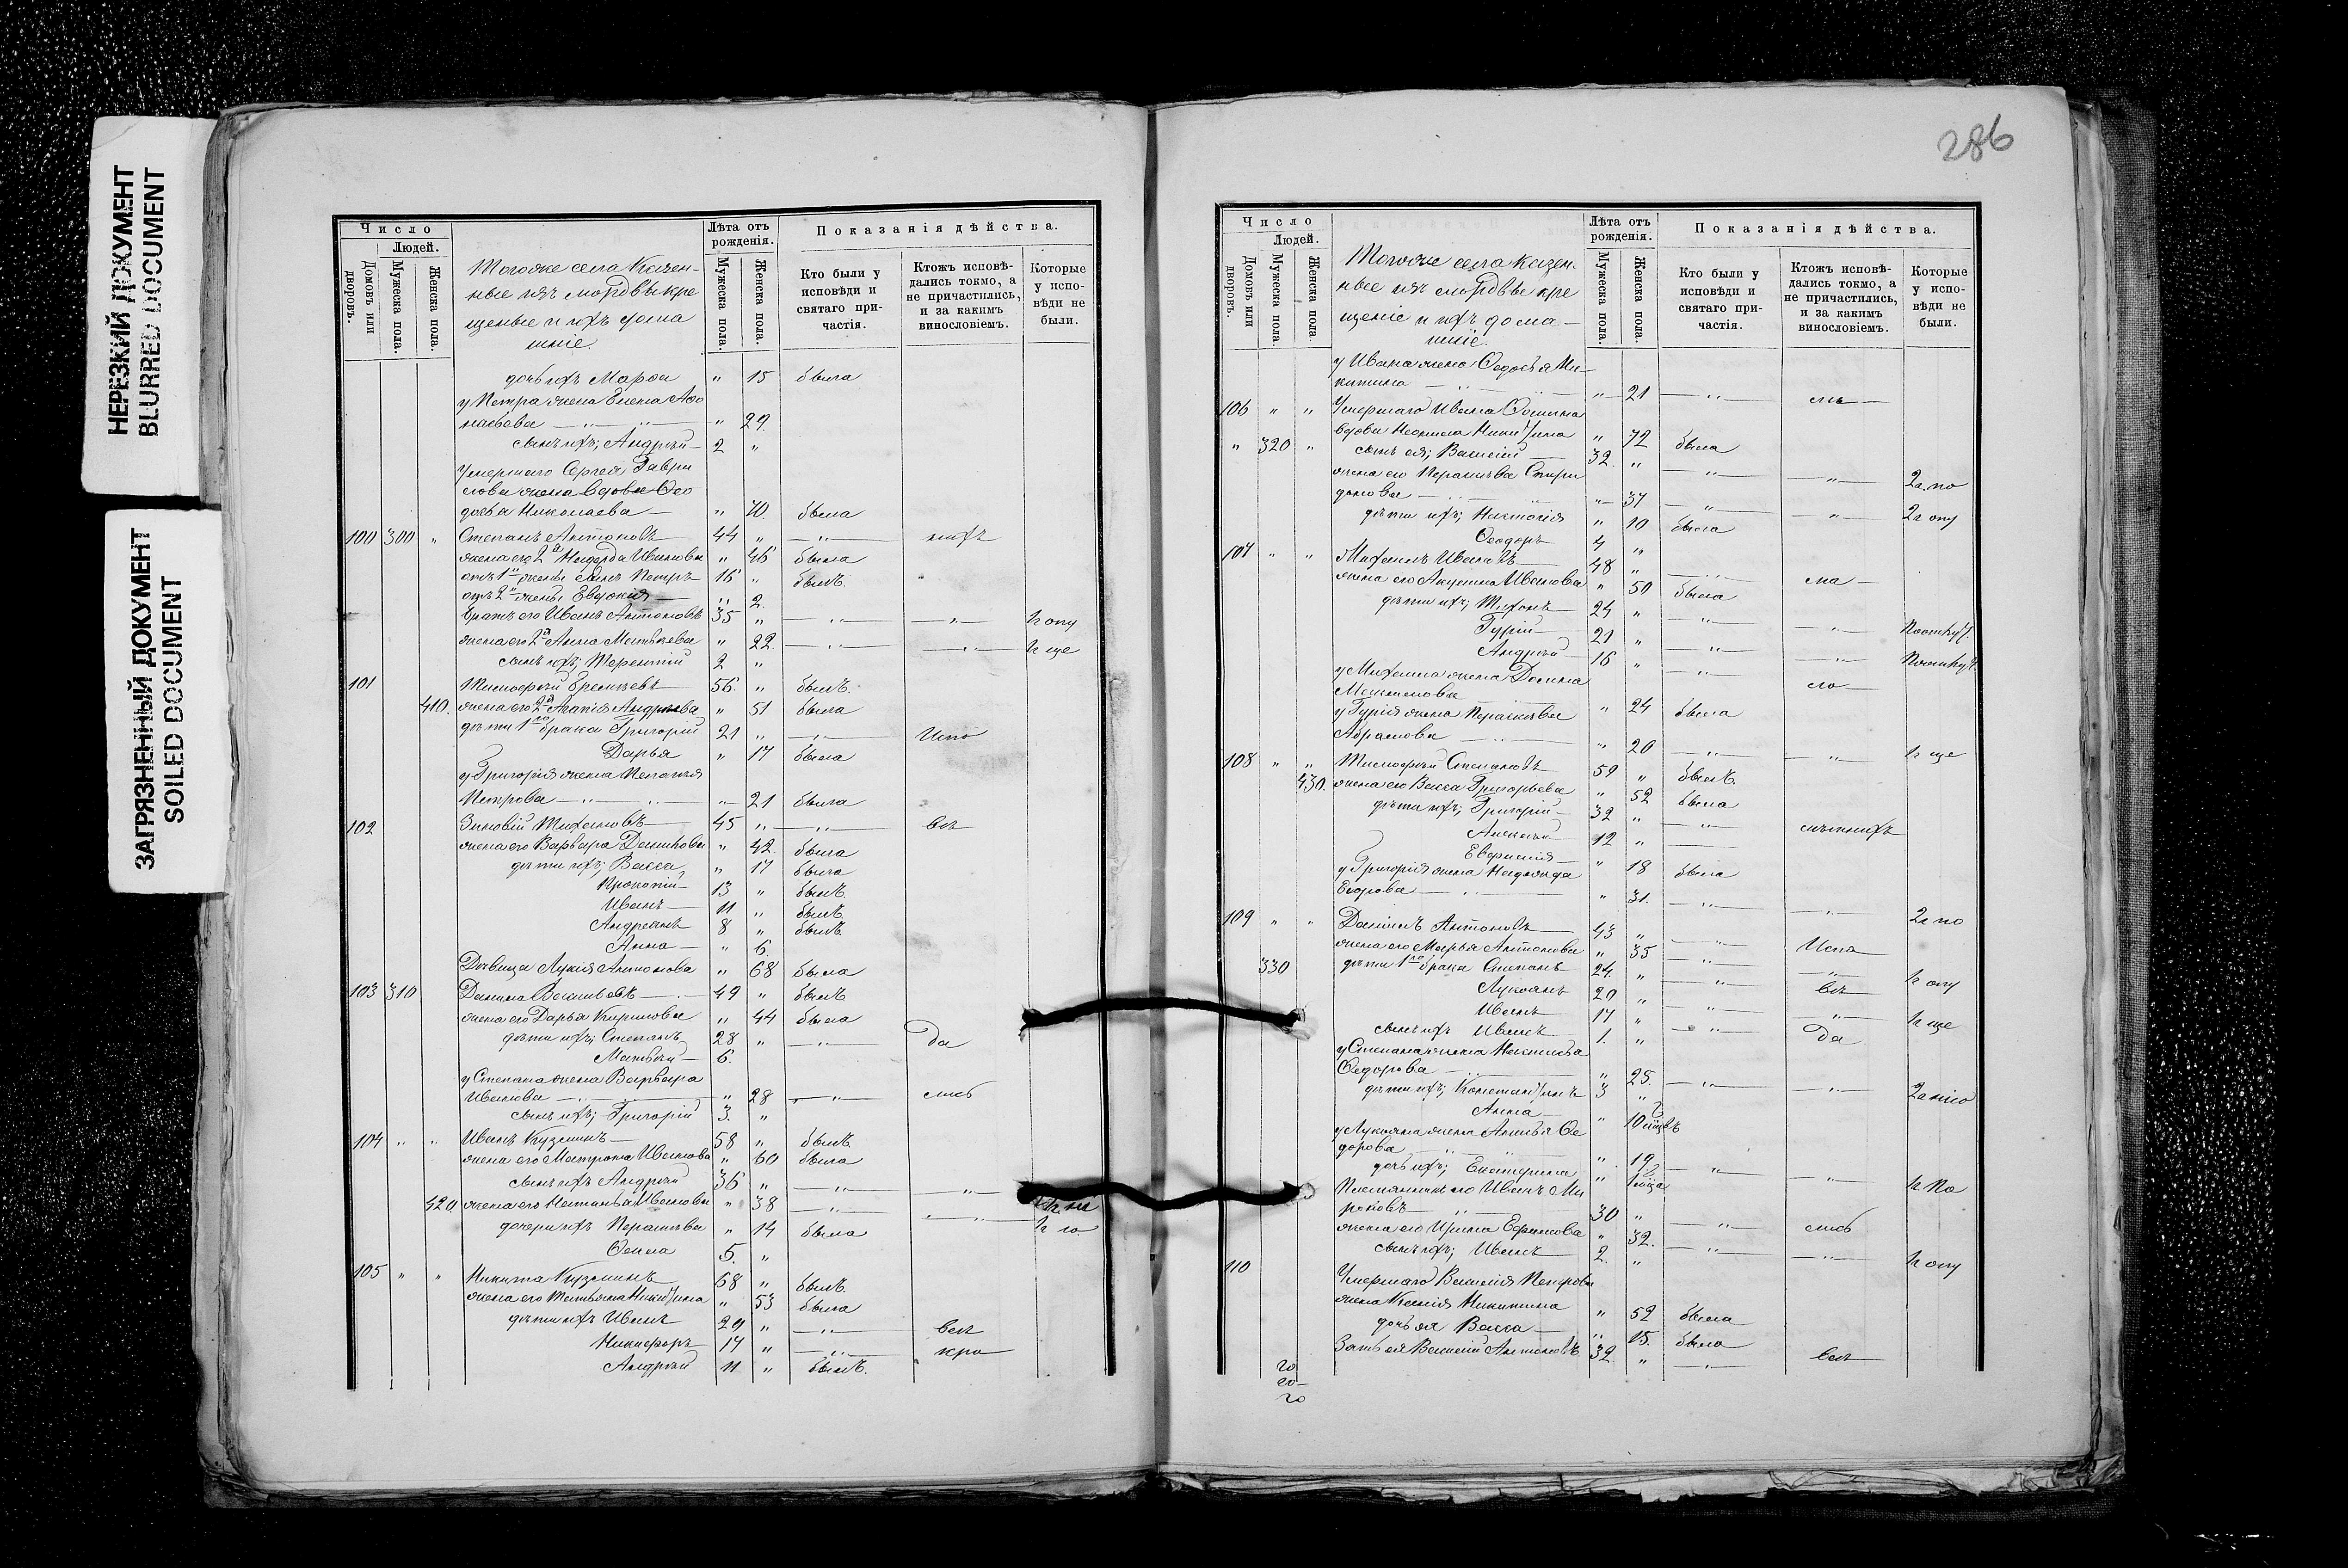 НЕРЕЗКИЙ ДОКУМЕНТ
BLURRED DOCUMENT
ЗАГРЯЗНЕННЫЙ ДОКУМЕНТ
SOILED DOCUMENT
Число
Людей.
Домовъ или дворовъ.
Мужеска пола.
Женска пола.
Тогоже села Казен-
ные изъ мордвы кре
щеные и ихъ дома
шніе.
Лѣта отъ рожденія.
Мужеска пола.
Женска пола.
Показанія дѣйства.
Кто были у исповѣди и святаго при-частія.
Ктожъ исповѣ-дались токмо, а не причастились, и за какимъ винословіемъ.
Которые у испо-вѣди не были.
дочь ихъ Марфа " 15 была
у Петра жена Елена Афо
насьева " 29
сынъ ихъ; Андрей 2 "
Умершаго Сергея Гаври
лова жена вдова Фео
досья Николаева " 70. была
100 300 " Степанъ Антоновъ 44 " "
жена его 2я Надежда Иванова " 46 была
отъ 1й жены сынъ Петръ 16 " былъ
отъ 2й жены Евдокія " 2.
братъ его Иванъ Антоновъ 35 " " "
жена его 2я Анна Матвѣева " 22. " "
сынъ ихъ; Терентій 2 "
101 Тимофей Еремѣевъ 56. " былъ
410. жена его 2я Агапія Андреева " 51 была
дѣти 1го брака Григорій 21 " "
Дарья " 17 была
у Григорія жена Пелагея
Петрова " 21 была
102 Зиновій Тихановъ 45 " "
жена его Варвара Данилова " 42. была
дѣти ихъ; Васса, " 17 была
Прокопій 13 " былъ
Иванъ 11 " былъ
Андреянъ 8 " былъ
Анна " 6.
Дѣвица Лукія Антонова " 68 была
103 310 Данила Васильевъ 49 " былъ
жена его Дарья Кирилова " 44 была
дѣти ихъ; Степанъ 28 " " да
Матвей 6.
у Степана жена Варвара
Иванова " 28 "
сынъ ихъ; Григорій 3. "
104 " " Иванъ Кузминъ 58 " былъ
жена его Матрона Иванова " 60 была
сынъ ихъ Андрей 36 " " "
420 жена его Наталья Иванова " 38 " "
дочери ихъ Парасковья " 14 была
Фекла 5. "
105 " " Никита Кузминъ 68 " былъ
жена его Татьяна Никитина " 53 была
дѣти ихъ Иванъ 29 " "
Никифоръ 17 " "
Андрей 11 " былъ
286
Число
Людей.
Домовъ или дворовъ.
Мужеска пола.
Женска пола.
Тогоже села Казен-
ные изъ мордвы кре
щеные и ихъ дома-
шніе.
Лѣта отъ рожденія.
Мужеска пола.
Женска пола.
Показанія дѣйства.
Кто были у исповѣди и святаго при-частія.
Ктожъ исповѣ-дались токмо, а не причастились, и за какимъ винословіемъ.
Которые у испо-вѣди не были.
у Ивана жена Федосья Ни-
китина " 21 "
106 " " Умершаго Ивана Фомина
вдова Неонила Никитина " 72 была
" 320 " сынъ ея; Василій 32. " " "
жена его Парасковья Спири
донова " 37 " "
дѣти ихъ; Настасія " 10 была
Феодоръ 4 "
107 " " Михаилъ Ивановъ 48 " "
жена его Акулина Иванова " 50 была
дѣти ихъ; Тихонъ 24 " " "
Гурій 21 " " "
Андрей 16 " "
" 24 была
у Гурія жена Парасковья
Абрамова " 20 " "
108 " " Тимофей Степановъ 59 " былъ
430. жена его Васса Григорьева " 52 была
дѣти ихъ; Григорій 32 " "
Алексей 12 "
Евфимія " 18 была
у Григорія жена Надежда
Егорова " 31. " "
109 " " Даніилъ Антоновъ 43 " "
жена его Марья Антонова " 35 " "
330 дѣти 1го брака Степанъ 24. " "
Лукоянъ 20 " " "
Иванъ 17 " " да
сынъ ихъ Иванъ 1. "
у Степана жена Настасья
Федорова " 25. " "
дѣти ихъ; Константинъ 3 "
Анна " 10
у Лукояна жена Анисья Фе
дорова " 19 " "
дочь ихъ; Екатерина "
Племянникъ его Иванъ Ми
роновъ 30 " "
жена его Ирина Ефимова " 32. " "
сынъ ихъ; Иванъ 2. "
110 Умершаго Василія Петрова
жена Ксенія Никитина " 52 была
дочь ея Васса " 15. была
Зять ея Василій Антоновъ 32 " "